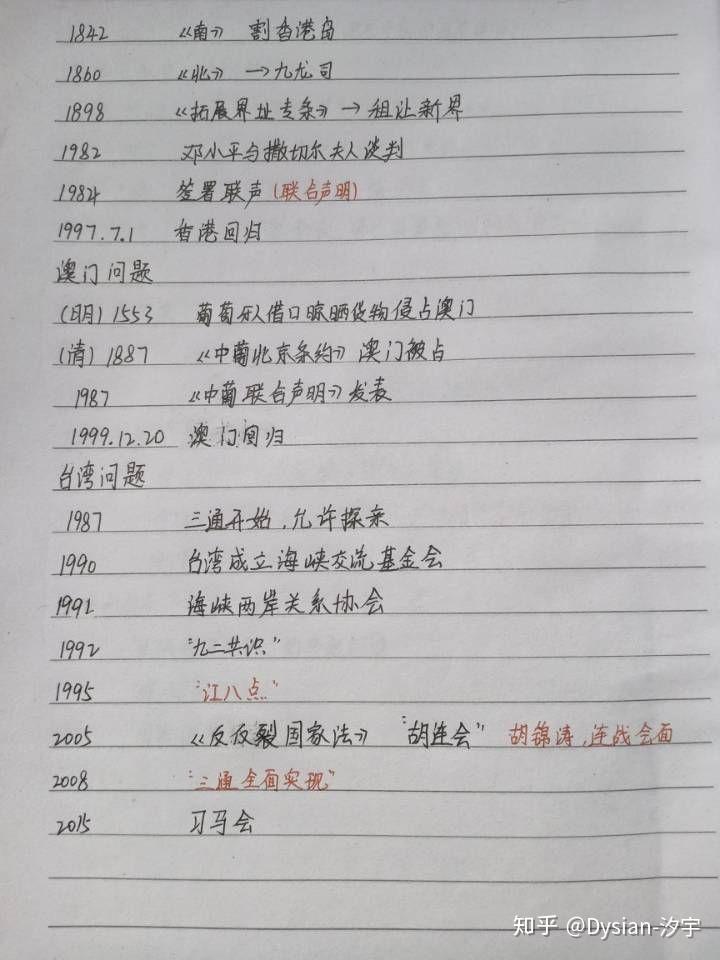 1842 《南》 割香港岛
1860 《北》 →九龙司
1898 《拓展界址专条》→租让新界
1982 邓小平与撒切尔夫人谈判
1984 签署联声(联合声明)
1997.7.1 香港回归
澳门问题
(明) 1553 葡萄牙人借口晾晒货物侵占澳门
(清) 1887 《中葡北京条约》澳门被占
1987 《中葡联合声明》发表
1999.12.20 澳门回归
台湾问题
1987 三通开始,允许探亲
1990 台湾成立海峡交流基金会
1991 海峡两岸关系协会
1992 "九二共识"
1995 "江八点"
2005 《反反裂国家法》 "胡连会" 胡锦涛,连战会面
2008 "三通全面实现"
2015 习马会
知乎 @Dysian-汐宇